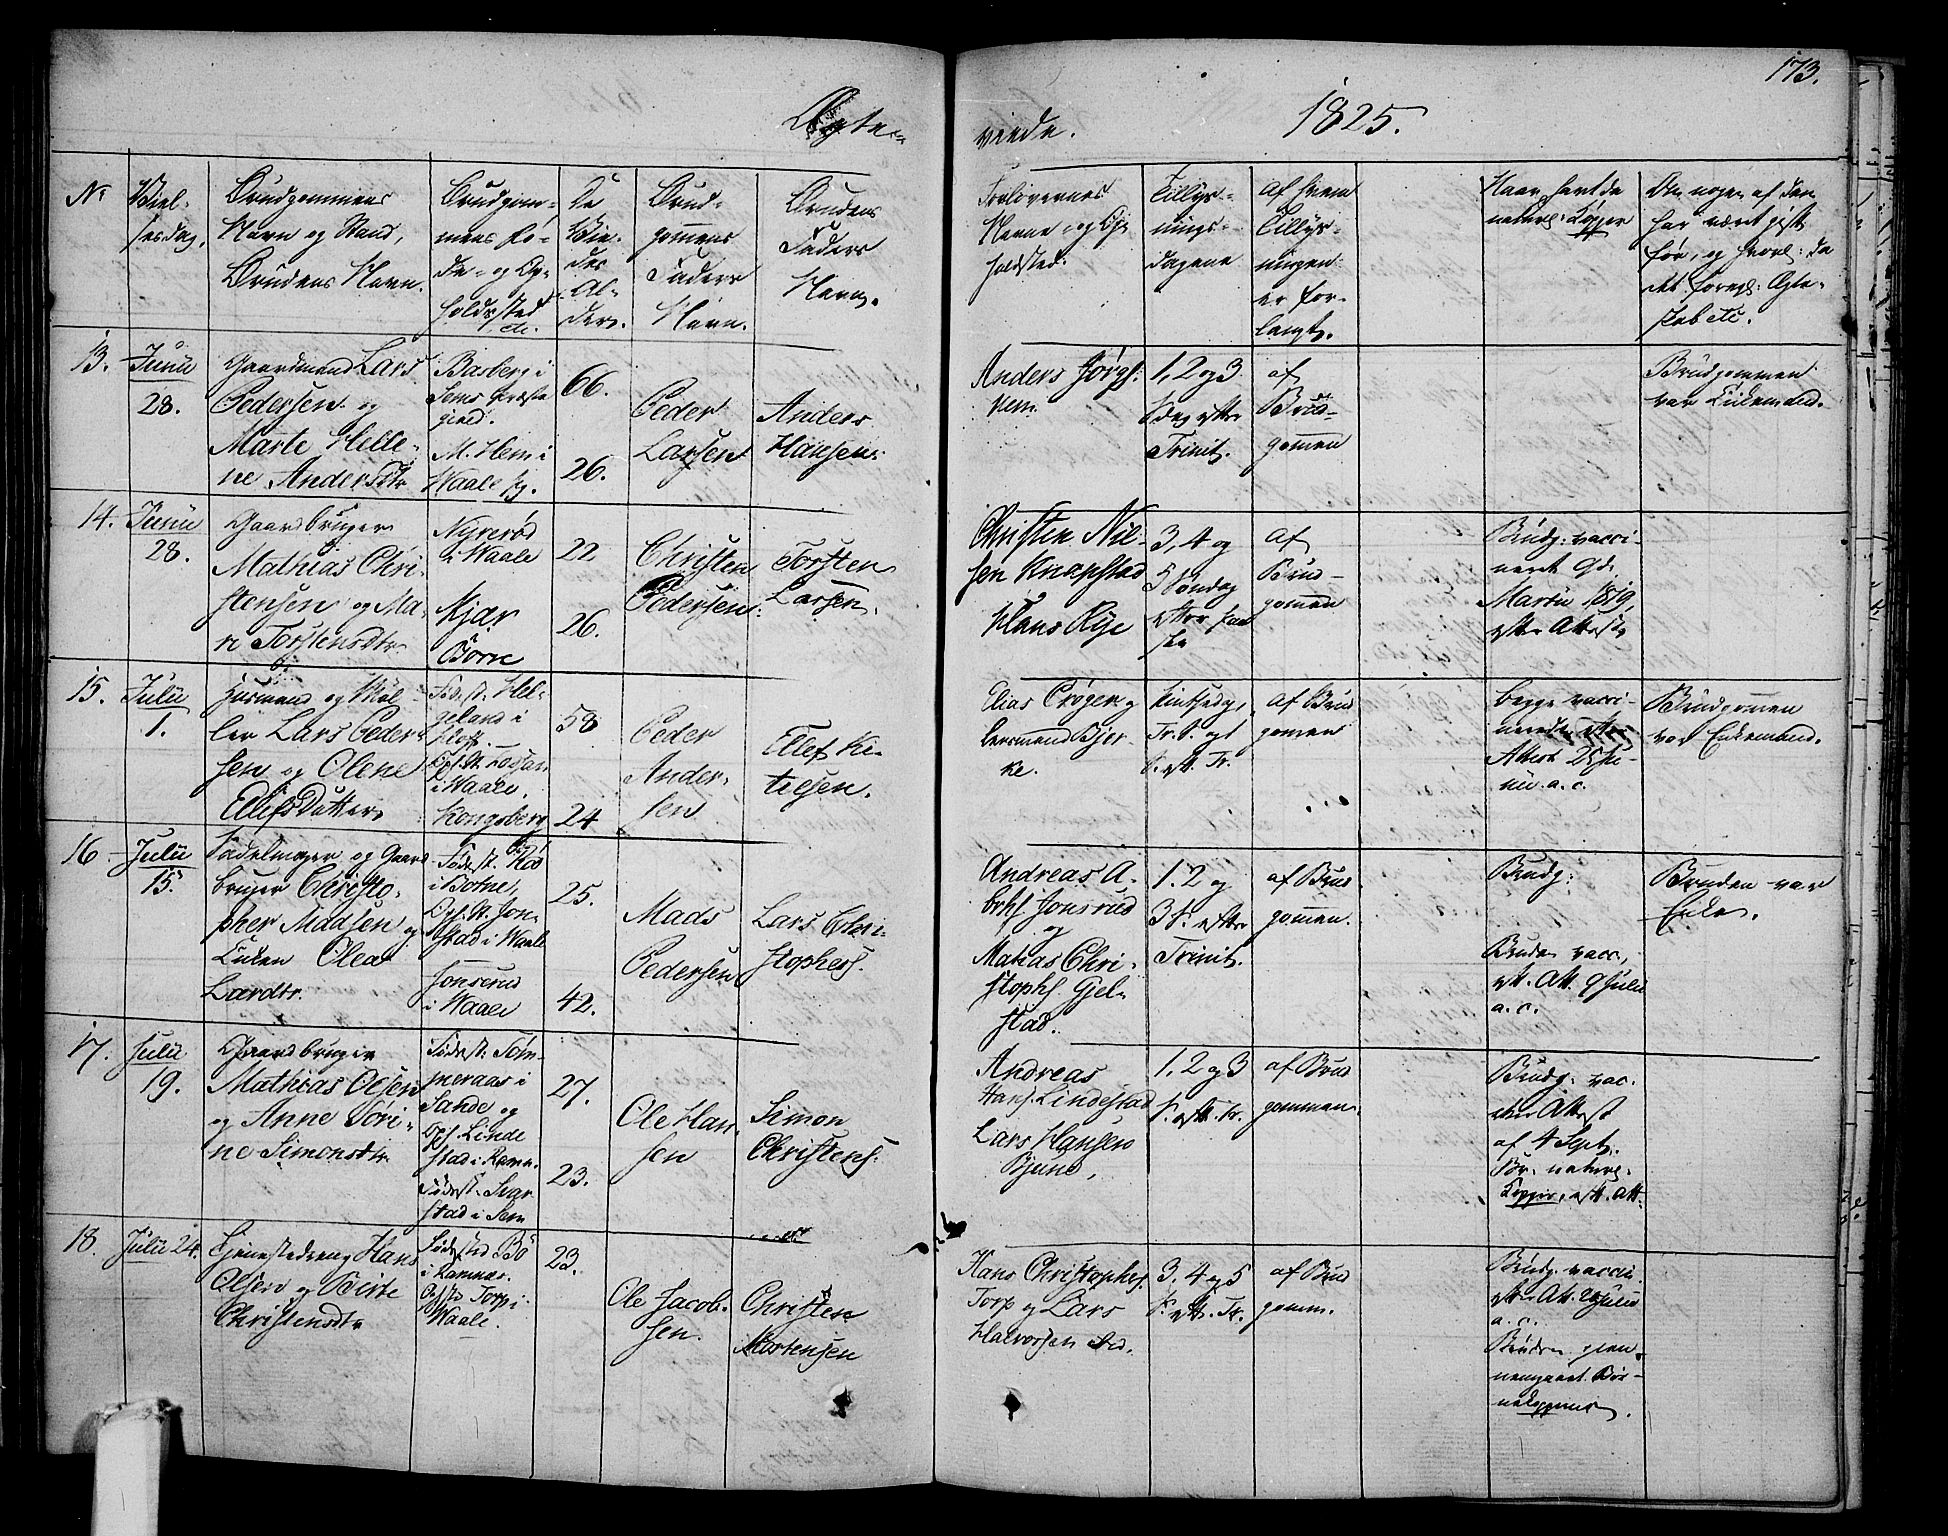 173.
Ægte-
viede.
1825.
No
Viel-
sesdag.
Brudgommens
Navn og Stand,
Brudens Navn.
Brudgom-
mens Fø-
de- og Op-
holdssted
etc.
De
Vie-
des
Al-
der.
Brud-
gomens
Faders
Navn.
Brudens
Faders
Navn.
Forlovernes
Navne og Op-
holdsted.
Tillys-
nings-
dagene
Af hvem
Tillys-
ningen
er for-
langt.
Havt de
naturl: Kopper
Om nogen af dem
har været gift
før, og hvorl: da
det foreg: Ægte-
skab etc.
13.
Junii
28.
Gaardmand Lars
Pedersen og
Marte Helle-
ne Andersdtr
Basberg i
Sems Præste
gield.
M. Hem i
Waale Pg.
66.
26.
Peder
Larsen
Anders
Hansen.
Anders Jørgs:
Hem.
1, 2 og 3
Sdag efter
Trinit.
af
Brud-
gomen
Brudgommen
var Enkemand.
14.
Junii
28.
Gaardbruger
Mathias Chri-
stensen og Ma-
ri Torstensdtr
Nyrerød
i Waale
Kjær
Borre
22
26.
Christen
Pedersen.
Torsten
Larsen.
Christen Nil-
sen Knapstad
Hans Rije
3, 4 og
5 Søndag
efter Paa
ske
af
Brud-
gomen
Brudg: vacci-
neret 9de
Martii 1819,
efter Attest
15.
Julii
1.
Huusmand og Møl-
ler Lars Peder-
sen og Olene
Ellefsdatter
Fødest. Hel-
geland i
Hoff.
i Waale.
Kongsberg
58
24
Peder
Ander-
sen
Ellef Ki-
tilsen.
Elias Crøger og
Lensmand Bjer-
ke.
af Brud
gomen
begge vacci-
nerede efter
Attest 25 Ju-
nii a. c.
Brudgomen
var Enkemand.
16.
Julii
15.
Sadelmager og Gaard
bruger Christo-
pher Madsen og
Enken Olea
Larsdtr.
Fødest. Rød
i Botne,
Oph. St. Jon-
stad i Waale
Jonsrud
i Waale
25.
42.
Mads
Pedersen
Lars Chri-
stophers.
Andreas A-
brhs Jonsrud
og
Matias Chri-
stophs. Gjel-
stad.
1. 2 og
3 S. efter
Trinit.
af Brud
gommen.
Brudg:
Bruden vacc.
eft. Att. 9 Julii
a. c.
Bruden var
Enke.
17.
Julii
19.
Gaardbruger
Mathias Olsen
og Anne Søri-
ne Simonsdtr
Fødest: Tøm-
meraas i
Sande og
Oph. Linde
stad i Ramn.
Fødest. Svar
stad i Sem
27.
23.
Ole Han-
sen
Simon
Christens.
Andreas
Hans. Lindestad
Lars Hansen
Bjune,
1. 2 og 3
S. eft. Tr.
af Brud
gommen.
Brudg: vac.
efter Attest
af 4 Sept.
Br. naturl:
Kopper, eft. Att.
18.
Julii 24.
Tjenestedreng Hans
Olsen og Berte
Christensdtr
Fødested Bö
i Ramnæs.
Torp i
Waale.
23.
Ole Jacob-
sen.
Christen
Mortensen
Hans Christophes.
Torp og Lars
Halvorsen ibid.
3. 4 og 5
S. eft. Tr.
af Brud
gomm.
Brudg. vaccin.
efter Att. Julii
a. c.
Bruden gien-
nemgaaet Bør-
nekopperne.